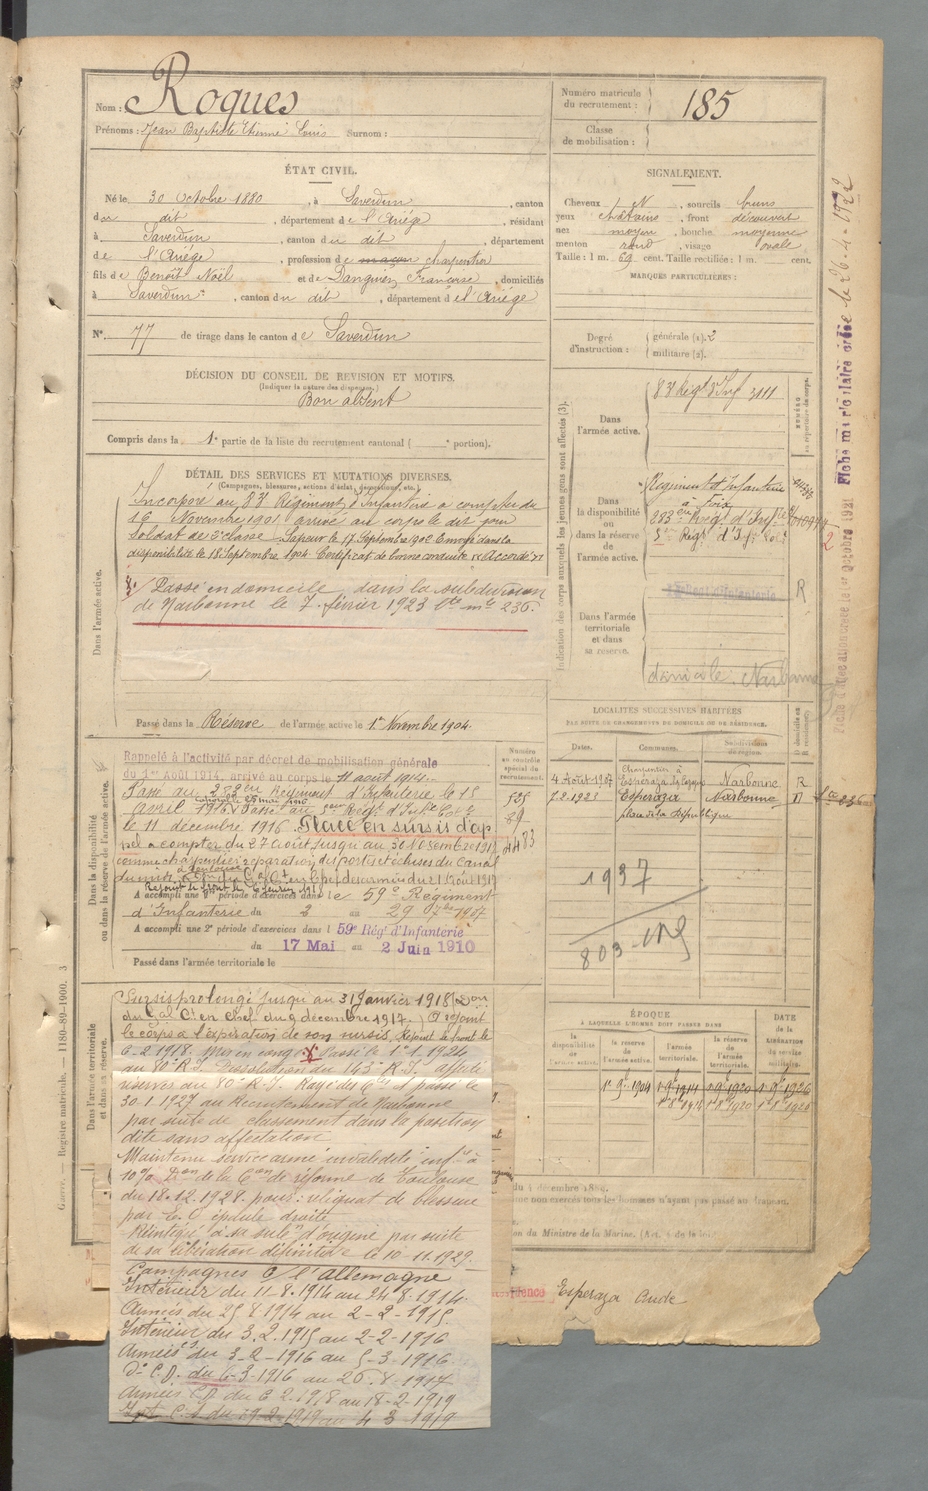 Nom : Roques
Prénoms : Jean Baptiste Etienne Louis Surnom :
Numéro matricule du recrutement : 185
Classe de mobilisation :
ÉTAT CIVIL.
Né le 30 Octobre 1880, à Saverdun, canton
du dit, département de l'Ariège, résidant
à Saverdun, canton du dit, département
de l'Ariège, profession de maçon charpentier
fils de Benoît Noël et de Françoise, domiciliés
à Saverdun, canton du dit, département de l'Ariège
N° 77 de tirage dans le canton de Saverdun
DÉCISION DU CONSEIL DE REVISION ET MOTIFS.
(Indiquer la nature des dispenses.)
Bon absent
Compris dans la 1e partie de la liste du recrutement cantonal ( portion).
SIGNALEMENT.
Cheveux N, sourcils bruns
yeux châtains, front découvert
nez moyen, bouche moyenne
menton rond, visage ovale
Taille : 1 m. 69 cent. Taille rectifiée : 1 m. cent.
MARQUES PARTICULIÈRES :
Degré d'instruction : générale (1). 2
militaire (2).
DÉTAIL DES SERVICES ET MUTATIONS DIVERSES.
(Campagnes, blessures, actions d'éclat, décorations, etc.)
Dans l'armée active.
Incorporé au 83e Régiment d'Infanterie à compter du
16 Novembre 1901 arrivé au corps le dit jour
Soldat de 2e classe. Sapeur le 17 Septembre 1902 Envoyé dans la
disponibilité le 18 Septembre 1904. Certificat de bonne conduite "Accordé"
Passé en domicile dans la subdivision
de Narbonne le 7 février 1923 236.
Passé dans la Réserve de l'armée active le 1er Novembre 1904.
Indication des corps auxquels les jeunes gens sont affectés (3).
NUMÉRO au répertoire du corps.
Dans l'armée active.
83e Régt d'Inf 3111
Dans la disponibilité ou dans la réserve de l'armée active.
Régiment d'Infanterie
à Foix
283e Régt d'Infie
5e Régt d'Infie Col
2
R
Dans l'armée territoriale et dans sa réserve.
domicile : Narbonne
LOCALITÉS SUCCESSIVES HABITÉES
PAR SUITE DE CHANGEMENTS DU DOMICILE OU DE RÉSIDENCE.
Dates. Communes. Subdivision de région.
Charpentier à
4 Août 1907 Espéraza Narbonne R
7.2.1923 Espéraza Narbonne D
place de la République
1937
803
Dans la disponibilité ou dans la réserve de l'armée active.
Numéro au contrôle spécial du recrutement.
Rappelé à l'activité par décret de mobilisation générale
du 1er Août 1914. arrivé au corps le 11 août 1914.
Passé au 283e Régiment d'Infanterie le 15
avril 1916. Passé au 5e Régt d'Infie Cole
le 11 décembre 1916. Placé en sursis d'ap
pel à compter du 27 août jusqu'au 30 Novembre 1917
comme charpentier réparation des portes et écluses du Canal
du midi à Toulouse
Rejoint le front le 6 février 1918
A accompli une 1e période d'exercices dans le 59e Régiment
d'Infanterie du 2 au 29 7bre 1907
A accompli une 2e période d'exercices dans l 59e Régt d'Infanterie
du 17 Mai au 2 Juin 1910
Passé dans l'armée territoriale le
Dans l'armée territoriale et dans sa réserve.
Sursis prolongé jusqu'au 31 Janvier 1918 (Don
du Gal Ct en chef du 9 décembre 1917. A rejoint
le corps à l'expiration de son sursis. Rejoint le front le
6-2-1918. Passé le 1.1.1924
au 80e R.I. Dissolution du 143e R.I. affecté
réserves au 80e R.I. Rayé des Cles et passé le
30.1.1927 au Recrutement de Narbonne
par suite de classement dans la position
dite sans affectation
Maintenu service armé invalidité infre à
10% Don de la Con de réforme de Toulouse
du 18.12.1928 pour : reliquat de blessure
par E.O épaule droite
Réintégré à sa subdn d'origine par suite
de sa libération définitive le 10.11.1929.
Campagnes c/ l'Allemagne
Intérieur du 11-8.1914 au 24 8.1914.
Armées du 25 8.1914 au 2-2-1915.
Intérieur du 3.2.1915 au 2-2-1916
Armées du 3-2-1916 au 5-3-1916.
d° C.D. du 6-3-1916 au 26.8-1917
Armées CD du 6 2.1918 au 18-2-1919
Intr C.S du 19-2-1919 au 4 3 1919
ÉPOQUE
À LAQUELLE L'HOMME DOIT PASSER DANS
la disponibilité de l'armée active. la réserve de l'armée active. l'armée territoriale. la réserve de l'armée territoriale.
DATE de la LIBÉRATION du service militaire.
1er 9bre 1904 1er 9bre 1914 1er 9bre 1920 1er 9bre 1926
du 4 décembre 1889.
Espéraza Aude
Guerre. — Registre matricule. — 1180-89-1900. 3
le 26-4-1922